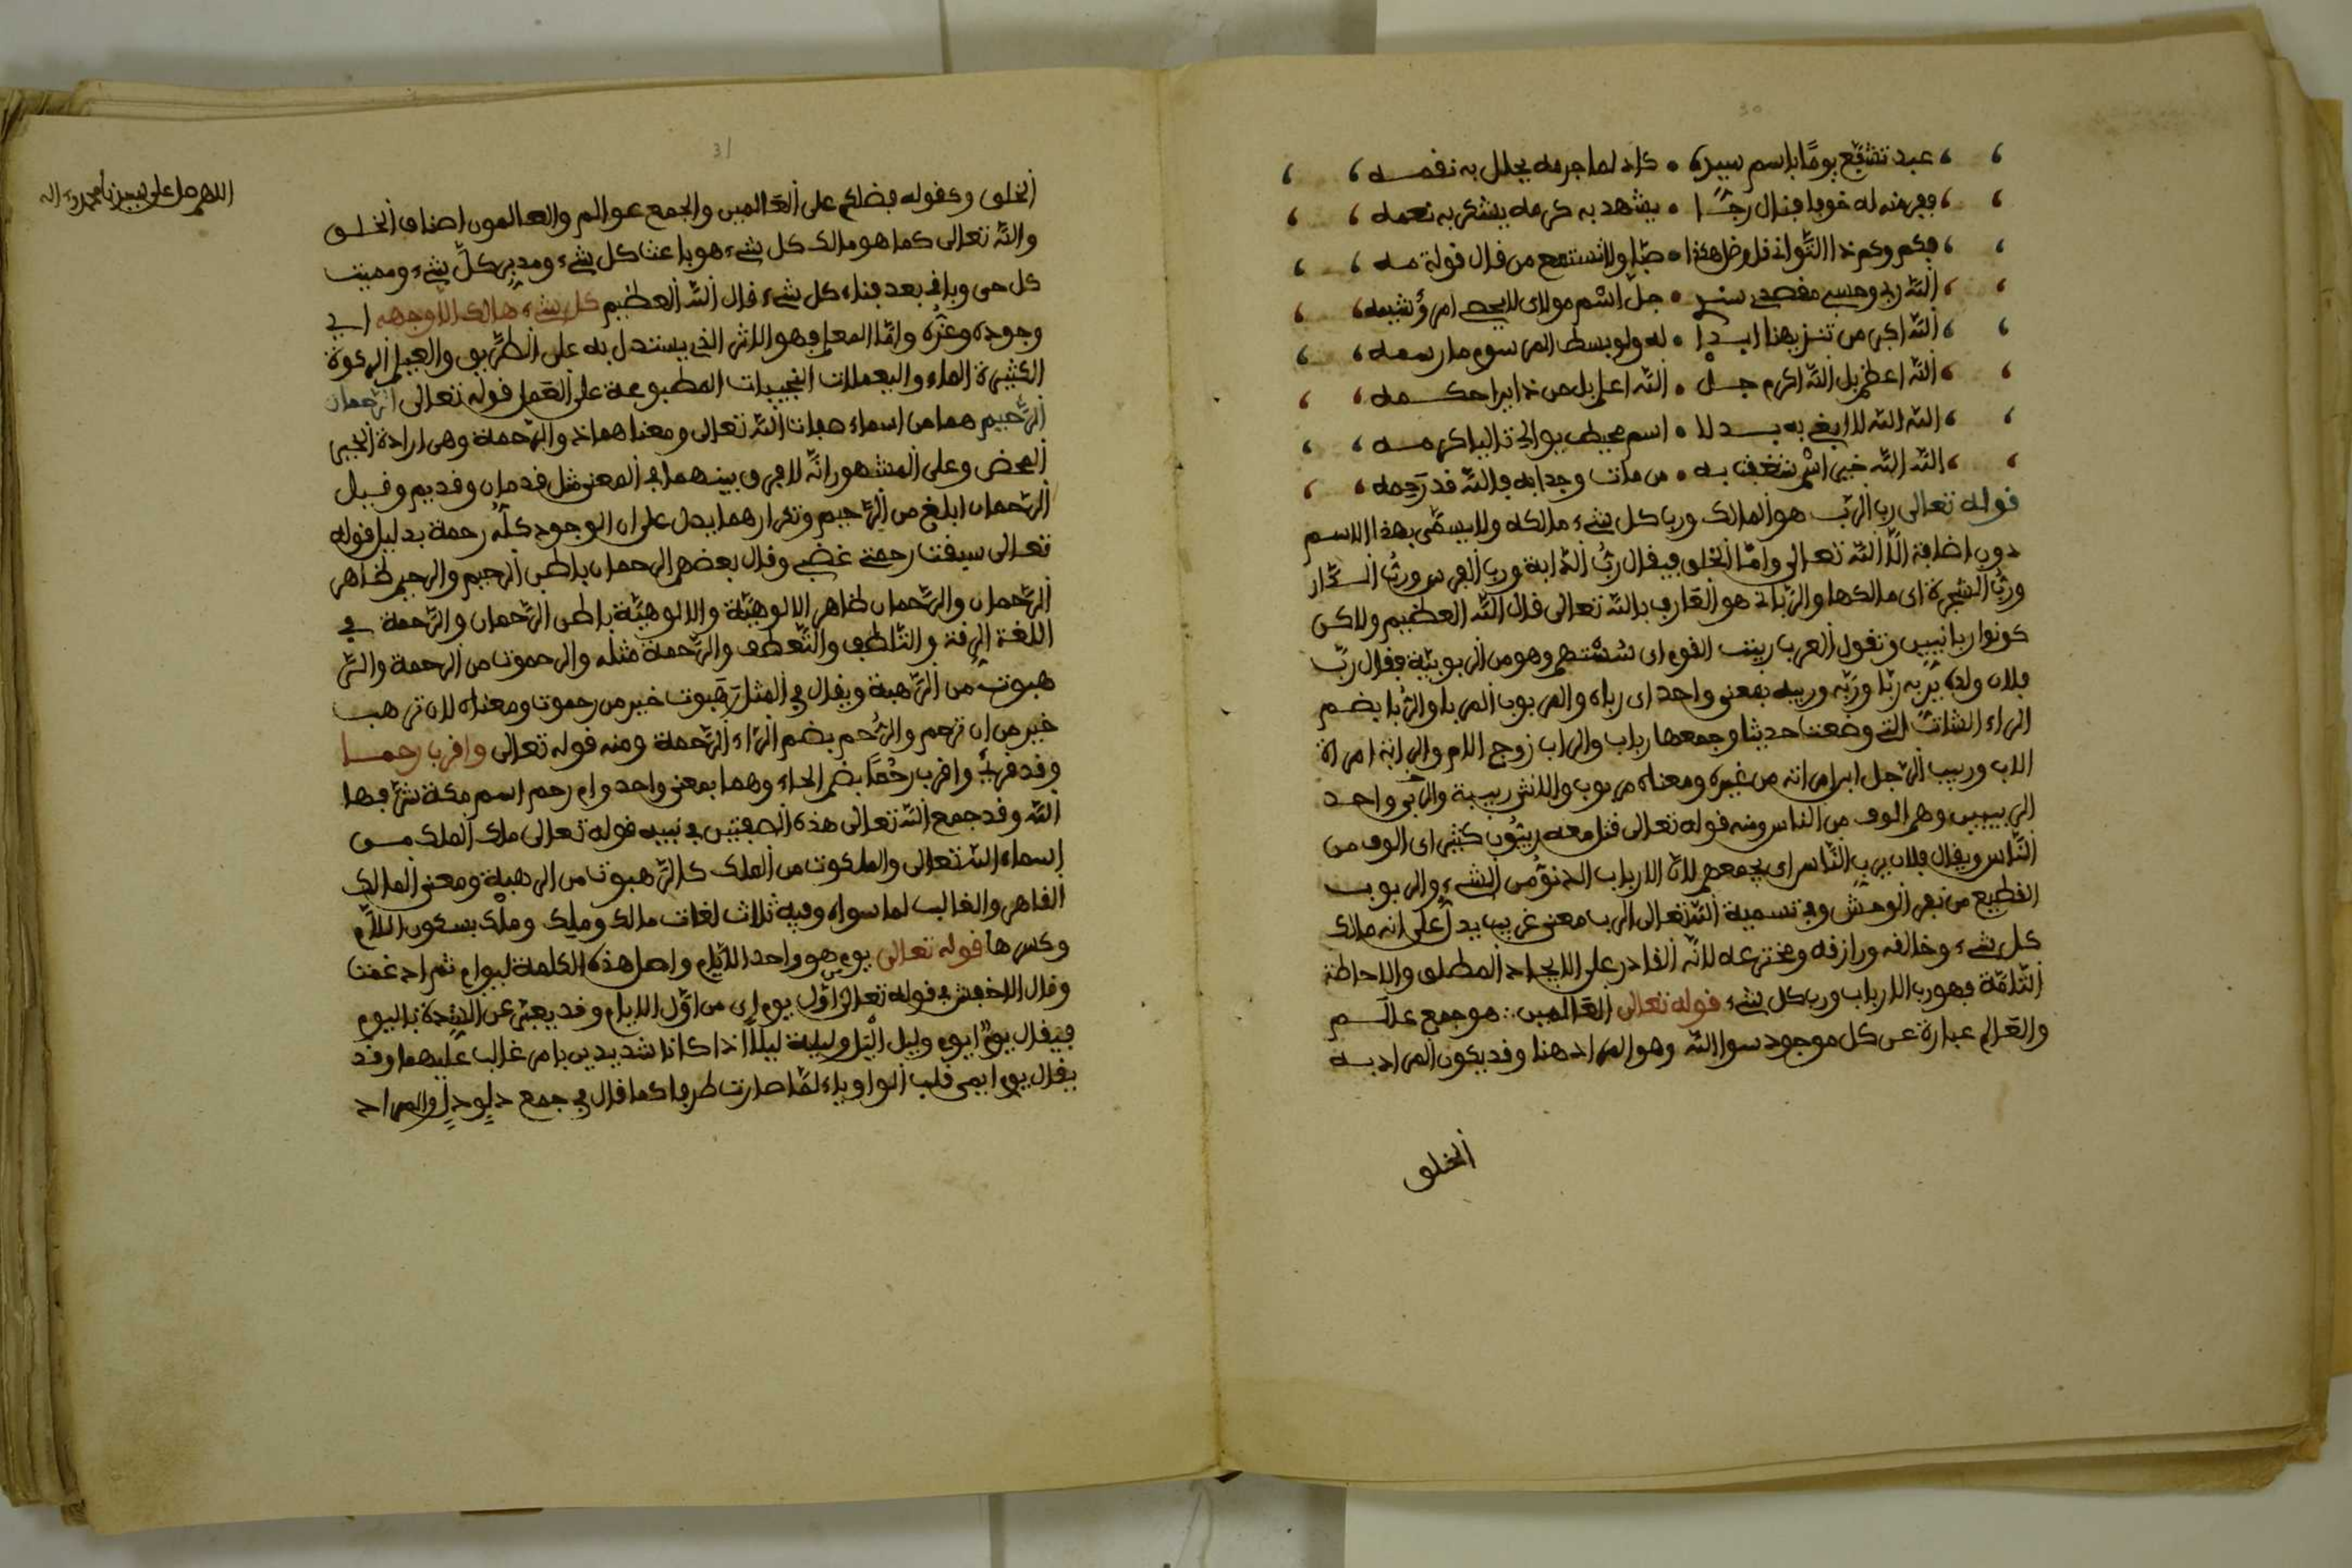 30
عبد تشفع يوما باسم سيده • كاد لما جرمه يحلل به نقمه
ففر منه له خوفا فنال رجـا • يشهد به كرمه يشكر به نعمه
فكم وكم ذا التواني قل وخل هكذا • صبا ولا تستمع من قال قولة مه
الله ربي وحسبي مقصدي سندي • جل اسم مولاي لا يحصي امرؤ شيمه
الله اكبر من تنزيهنا ابدا • له ولو بسط المرسوم ما رسمه
الله اعظم بل الله اكرم جل • الله اعلم بل من ذا يرا حكمه
الله الله لا ابغي به بدلا • اسم محيط بوالي تاليا كرمه
الله الله خير اسم شغفت به • من مات وجدا به فالله قد رحمه
قوله تعالى رب الرب هو المالك ورب كل شيء مالكه ولا يسمى بهذا الاسم
دون اضافة الا الله تعالى واما الخلق فيقال رب الدابة ورب الفرس ورب الدار
ورب الشجرة اي مالكها والرباني هو العارف بالله تعالى قال الله العظيم ولاكن
كونوا ربانيين وتقول العرب ربيت القوم اي سستهم وهو من الربوبية فقال رب
فلان ولده يربه ربا وربه وربيه بمعنى واحد اي رباه والمربوب المربا والربا بضم
الراء الشاة التي وضعت حديثا وجمعها رباب والراب زوج الام والرابة امراة
الاب وربيب الرجل ابن امراته من غيره ومعناه مربوب والانثى ربيبة والربي واحد
الربيين وهم الوف من الناس ومنه قوله تعالى قتل معه ربيون كثير اي الوف من
الناس ويقال فلان يرب الناس اي يجمعهم لان الارباب الدنو من الشيء والربوب
القطيع من بقر الوحش وفي تسمية الله تعالى الرب معنى غريب يدل على انه مالك
كل شيء وخالقه ورازقه ومخترعه لانه القادر على الايجاد المطلق والاحاطة
التامة فهو رب الارباب ورب كل شيء قوله تعالى العالمين ∴ هو جمع عالم
والعالم عبارة عن كل موجود سوا الله وهو المراد هنا وقد يكون المراد به
الخلق
31
اللهم صل على سيدنا محمد وءاله
الخلق وكقوله فضلكم على العالمين والجمع عوالم والعالمون اصناف الخلق
والله تعالى كما هو مالك كل شيء هو باعث كل شيء ومدبر كل شيء ومميت
كل حي وباق بعد فناء كل شيء قال الله العظيم كل شيء هالك الا وجهه اي
وجوده وعزه واما المعلم فهو الاثر الذي يستدل به على الطريق والعيلم الركوة
الكثيرة الماء واليعملات النجيبات المطبوعة على العمل قوله تعالى الرحمان
الرحيم هما من اسماء صفات الله تعالى ومعناهما ذو الرحمة وهي ارادة الخير
المحض وعلى المشهور انه لا فرق بينهما في المعنى مثل قدمان وقديم وقيل
الرحمان ابلغ من الرحيم وتكرارهما يدل على ان الوجود كله رحمة بدليل قوله
تعالى سبقت رحمتي غضبي وقال بعضهم الرحمان باطن الرحيم والرحيم ظاهر
الرحمان والرحمان ظاهر الالوهية والالوهية باطن الرحمان والرحمة في
اللغة الرقة والتلطف والتعطف والرحمة مثله والرحموت من الرحمة والر
هبوت من الرهبة ويقال في المثل رهبوت خير من رحموت ومعناه لان ترهب
خير من ان ترحم والرحم بضم الراء الرحمة ومنه قوله تعالى واقرب رحما
وقد قرئ واقرب رحما بضم الحاء وهما بمعنى واحد وام رحم اسم مكة شرفها
الله وقد جمع الله تعالى هذه الصفتين في نبيه قوله تعالى ملك الملك من
اسماء الله تعالى والملكوت من الملك كالرهبوت من الرهبة ومعنى المالك
القاهر والغالب لما سواه وفيه ثلاث لغات مالك ومليك وملك بسكون اللام
وكسرها قوله تعالى يوم هو واحد الايام واصل هذه الكلمة ايوام ثم ادغمت
وقال الاخفش في قوله تعالى من اول يوم اي من اول الايام وقد يعبر عن الشدة باليوم
فيقال يوم ايوم وليل اليل وليلة ليلا اذا كانا شديدين بامر غالب عليهما وقد
يقال يوم ايمى قلب الواو ياء لما صارت طرفا كما قال في جمع دلو دل والمراد